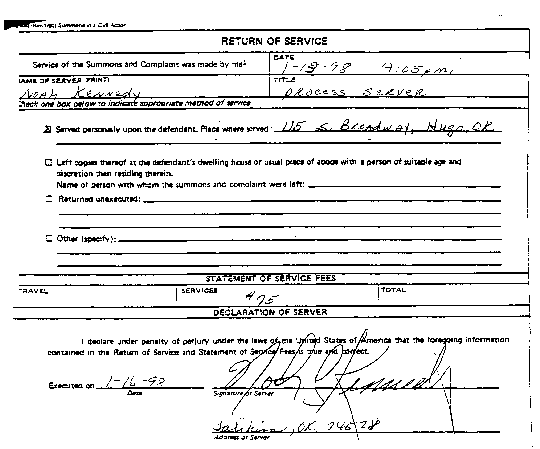 Summons in a Civil Action
RETURN OF SERVICE
Service of the Summons and Complaint was made by me¹
DATE
1-15-98 4:05 p.m.
NAME OF SERVER (PRINT)
Noah Kennedy
TITLE
process server
Check one box below to indicate appropriate method of service
☒ Served personally upon the defendant. Place where served: 115 S. Broadway, Hugo, OK
☐ Left copies thereof at the defendant's dwelling house or usual place of abode with a person of suitable age and
discretion then residing therein.
Name of person with whom the summons and complaint were left:
☐ Returned unexecuted:
☐ Other (specify):
STATEMENT OF SERVICE FEES
TRAVEL
SERVICES
$75
TOTAL
DECLARATION OF SERVER
I declare under penalty of perjury under the laws of the United States of America that the foregoing information
contained in the Return of Service and Statement of Service Fees is true and correct.
Executed on 1-16-98
Date
Noah Kennedy
Signature of Server
Talihina, OK. 74571
Address of Server